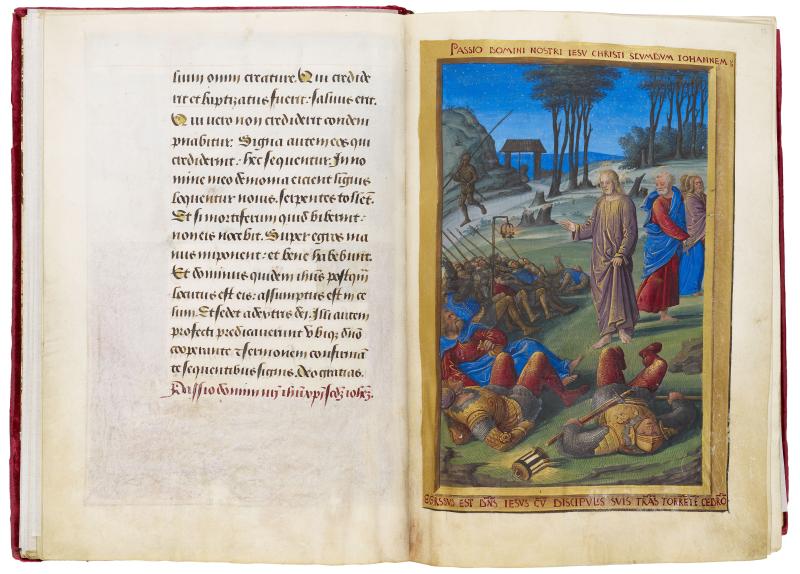 suum omni creature. Qui credide
rit et baptizatus fuerit: salvus erit.
Qui vero non crediderit condem
pnabitur: Signa autem eos qui
crediderint: hec sequentur. In no
mine meo demonia eicient linguis
loquentur novis. serpentes tollēt.
Et si mortiferum quid biberint:
non eis nocebit. Super egros ma
nus imponent: et bene habebunt.
Et dominus quidem ihūs postq̄m
locutus est eis: assumptus est in ce
lum. Et sedet a dextris dei. Illi autem
profecti predicaverunt ubiq; dn̄o
cooperante et sermonem confirmā
te sequentibus signis. Deo gratias.
Passio domini nr̄i ihū xp̄i scd̄z iohēz.
PASSIO DOMINI NOSTRI IESU CHRISTI SECUMDUM IOHANNEM
EGRESSVS EST DN̄S IESVS CV̄ DISCIPVLIS SVIS TRĀS TORRĒTĒ CEDRŌ